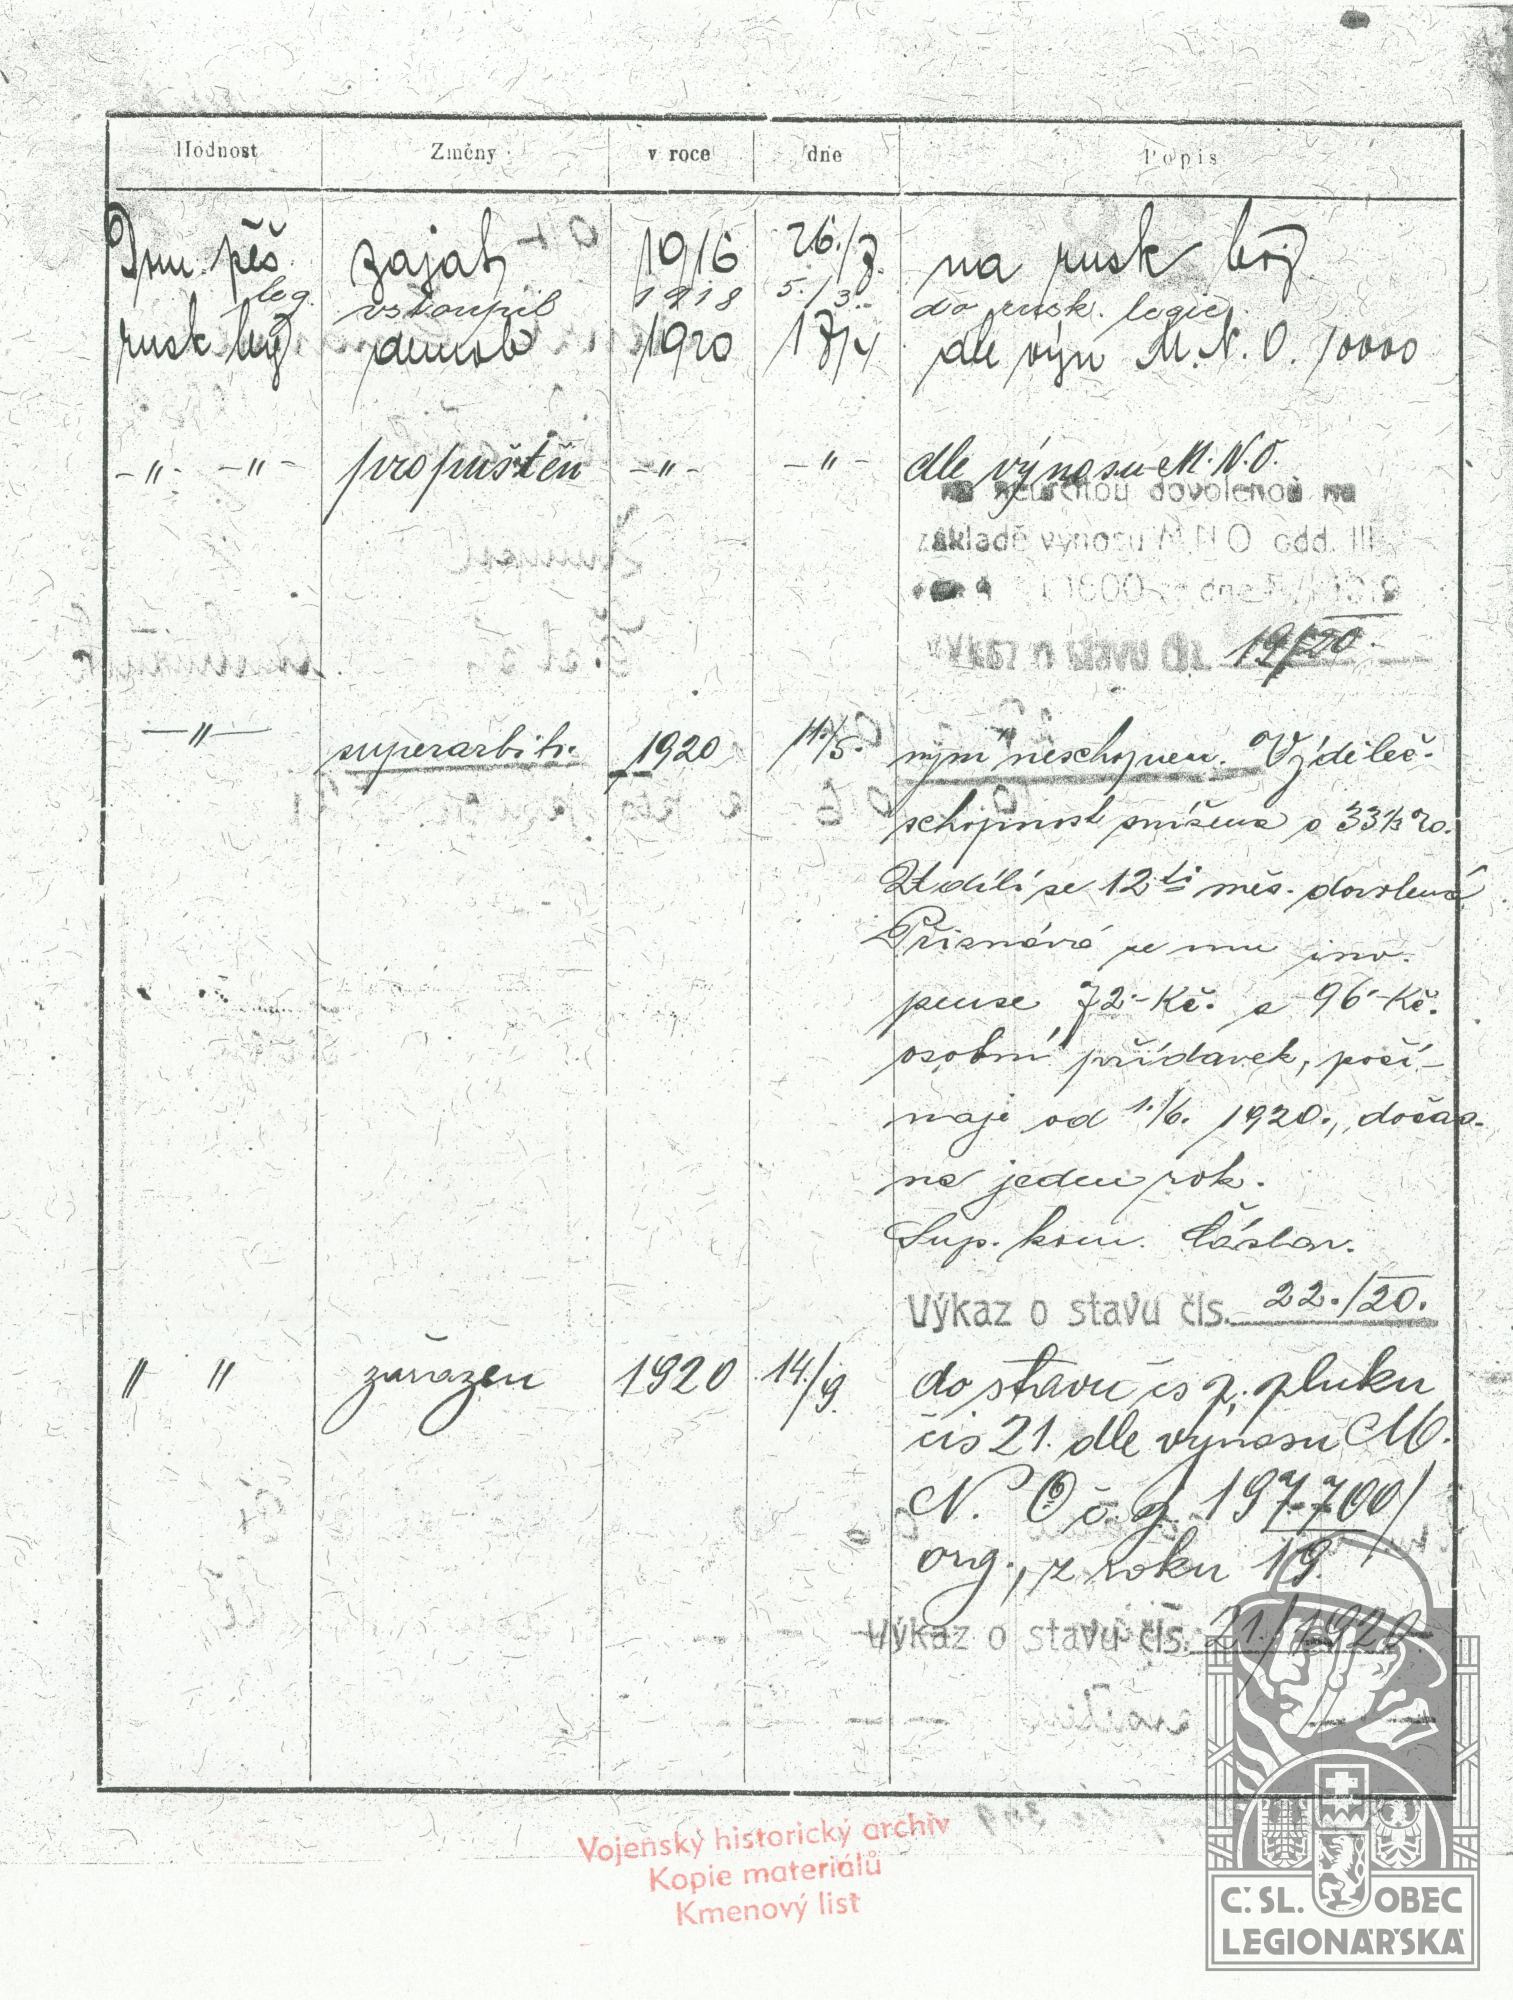 Hodnost Změny v roce dne Popis
Dom. pěš. zajat 1916 26./7. na rusk boj.
leg. vstoupil 1918 5./3. do rusk. legie
rusk leg demob 1920 17/4 dle výn M.N.O. 10000
-"- -"- propuštěn -"- -"- dle výnosu M.N.O.
na neurčitou dovolenou na
základě výnosu MNO odd. III
Výkaz o stavu čís. 19/20.
-"- superarbitr. 1920 11./5. neschopen. Výděleč.
schopnost snížena o 33⅓ %.
Udílí se 12ti měs. dovolená
Přiznává se mu inv.
pense 72·- Kč. a 96·- Kč.
osobní přídavek, počí-
naje od 1./6. 1920., dočas.
na jeden rok.
Sup. kom. Čáslav.
Výkaz o stavu čís. 22./20.
" " zařazen 1920 14./9. do stavu čs p. pluku
čís 21. dle výnosu M.
N. O č.j. 197700/
org., z roku 19.
Výkaz o stavu čís. 21./1920
Vojenský historický archiv
Kopie materiálů
Kmenový list
Č.SL. OBEC
LEGIONÁŘSKÁ